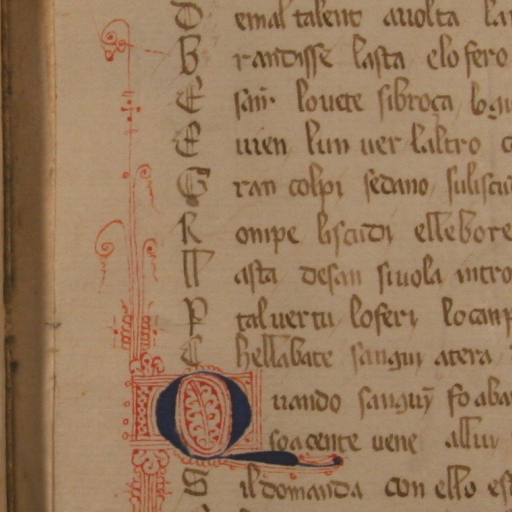 D emal talent auolta la
B randisse lasta elo fero
E san louete sibroça logu
E uien lun uer laltro c
G ran colpi sedano suliscu
R ompe liscudi ellebore
M asta desan siuola intro
P tal uertu loferi lo canp
C hellabate sangui atera
Q uando sanguī fo aba
soa cente uene allui
S il domanda con ello es